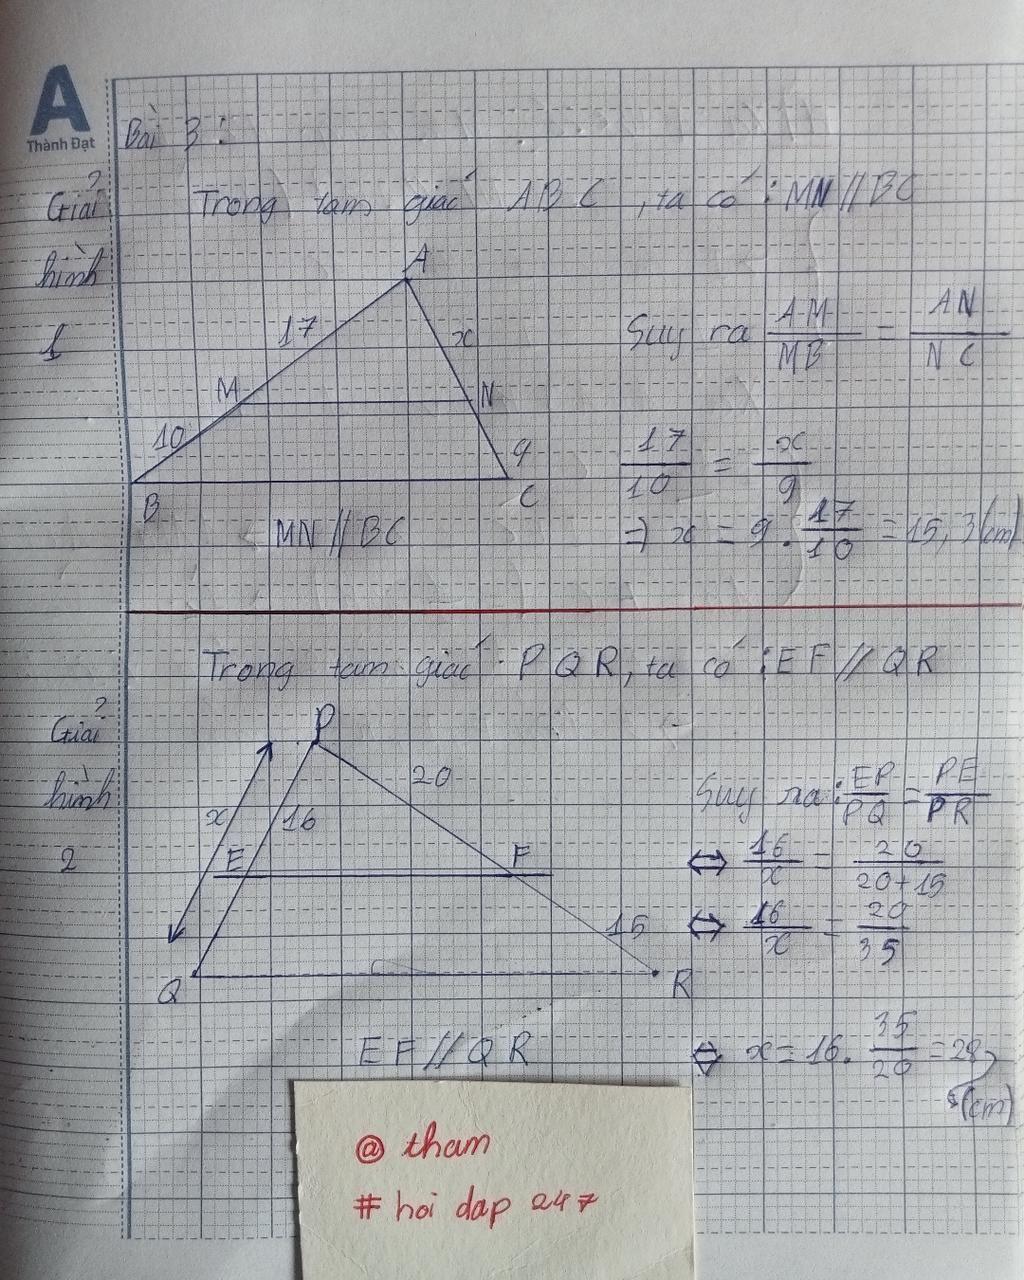 A
Thành Đạt
Bài 3 :
Giải
hình
1
Trong tam giác ABC, ta có : MN // BC
A
17
x
M
N
10
9
B
C
MN // BC
Suy ra AM/MB = AN/NC
17/10 = x/9
=> x = 9 . 17/10 = 15,3 (cm)
Trong tam giác PQR, ta có : EF // QR
Giải
hình
2
P
20
x
16
E
F
15
Q
R
EF // QR
Suy ra : EP/PQ = PE/PR
⇔ 16/x = 20/20+15
⇔ 16/x = 20/35
⇔ x = 16 . 35/20 = 28
(cm)
@ tham
# hoi dap 247